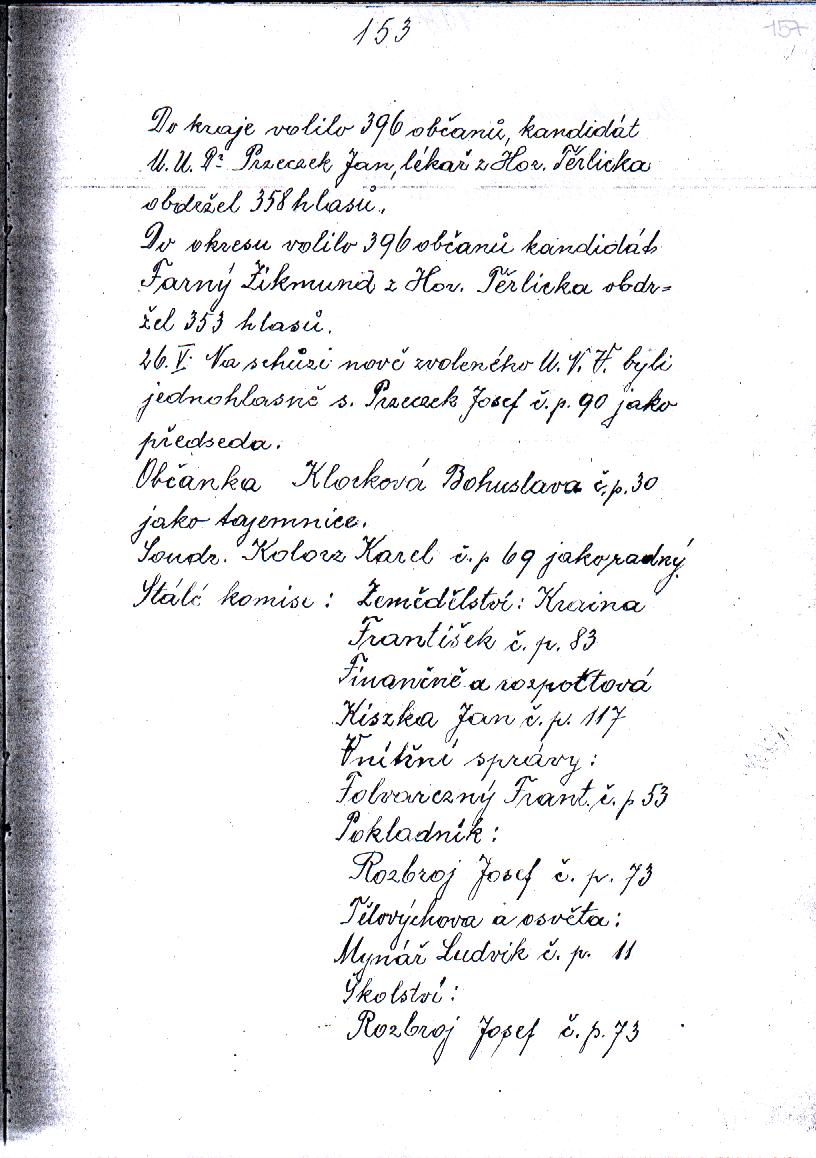 153
157
Do kraje volilo 396 občanů, kandidát
U.U. Dr Przeczek Jan, lékař z Hor. Těrlicka
obdržel 358 hlasů.
Do okresu volilo 396 občanů kandidát
Farný Zikmund z Hor. Těrlicka obdr=
žel 353 hlasů.
26. V. Na schůzi nově zvoleného M. N. V. byli
jednohlasně s. Przeczek Josef č.p. 90 jako
předseda.
Občanka Klocková Bohuslava č.p. 30
jako tajemnice.
Soudr. Kolorz Karel č.p 69 jako radný.
Stálé komise: Zemědělství: Kraina
František č. p. 83
Finančně a rozpočtová
Kiszka Jan č. p. 117
Vnitřní správy:
Folvarczný Frant. č. p 53
Pokladník:
Rozbroj Josef č. p. 73
Tělovýchova a osvěta:
Mynář Ludvik č. p. 11
Školství:
Rozbroj Josef č. p. 73